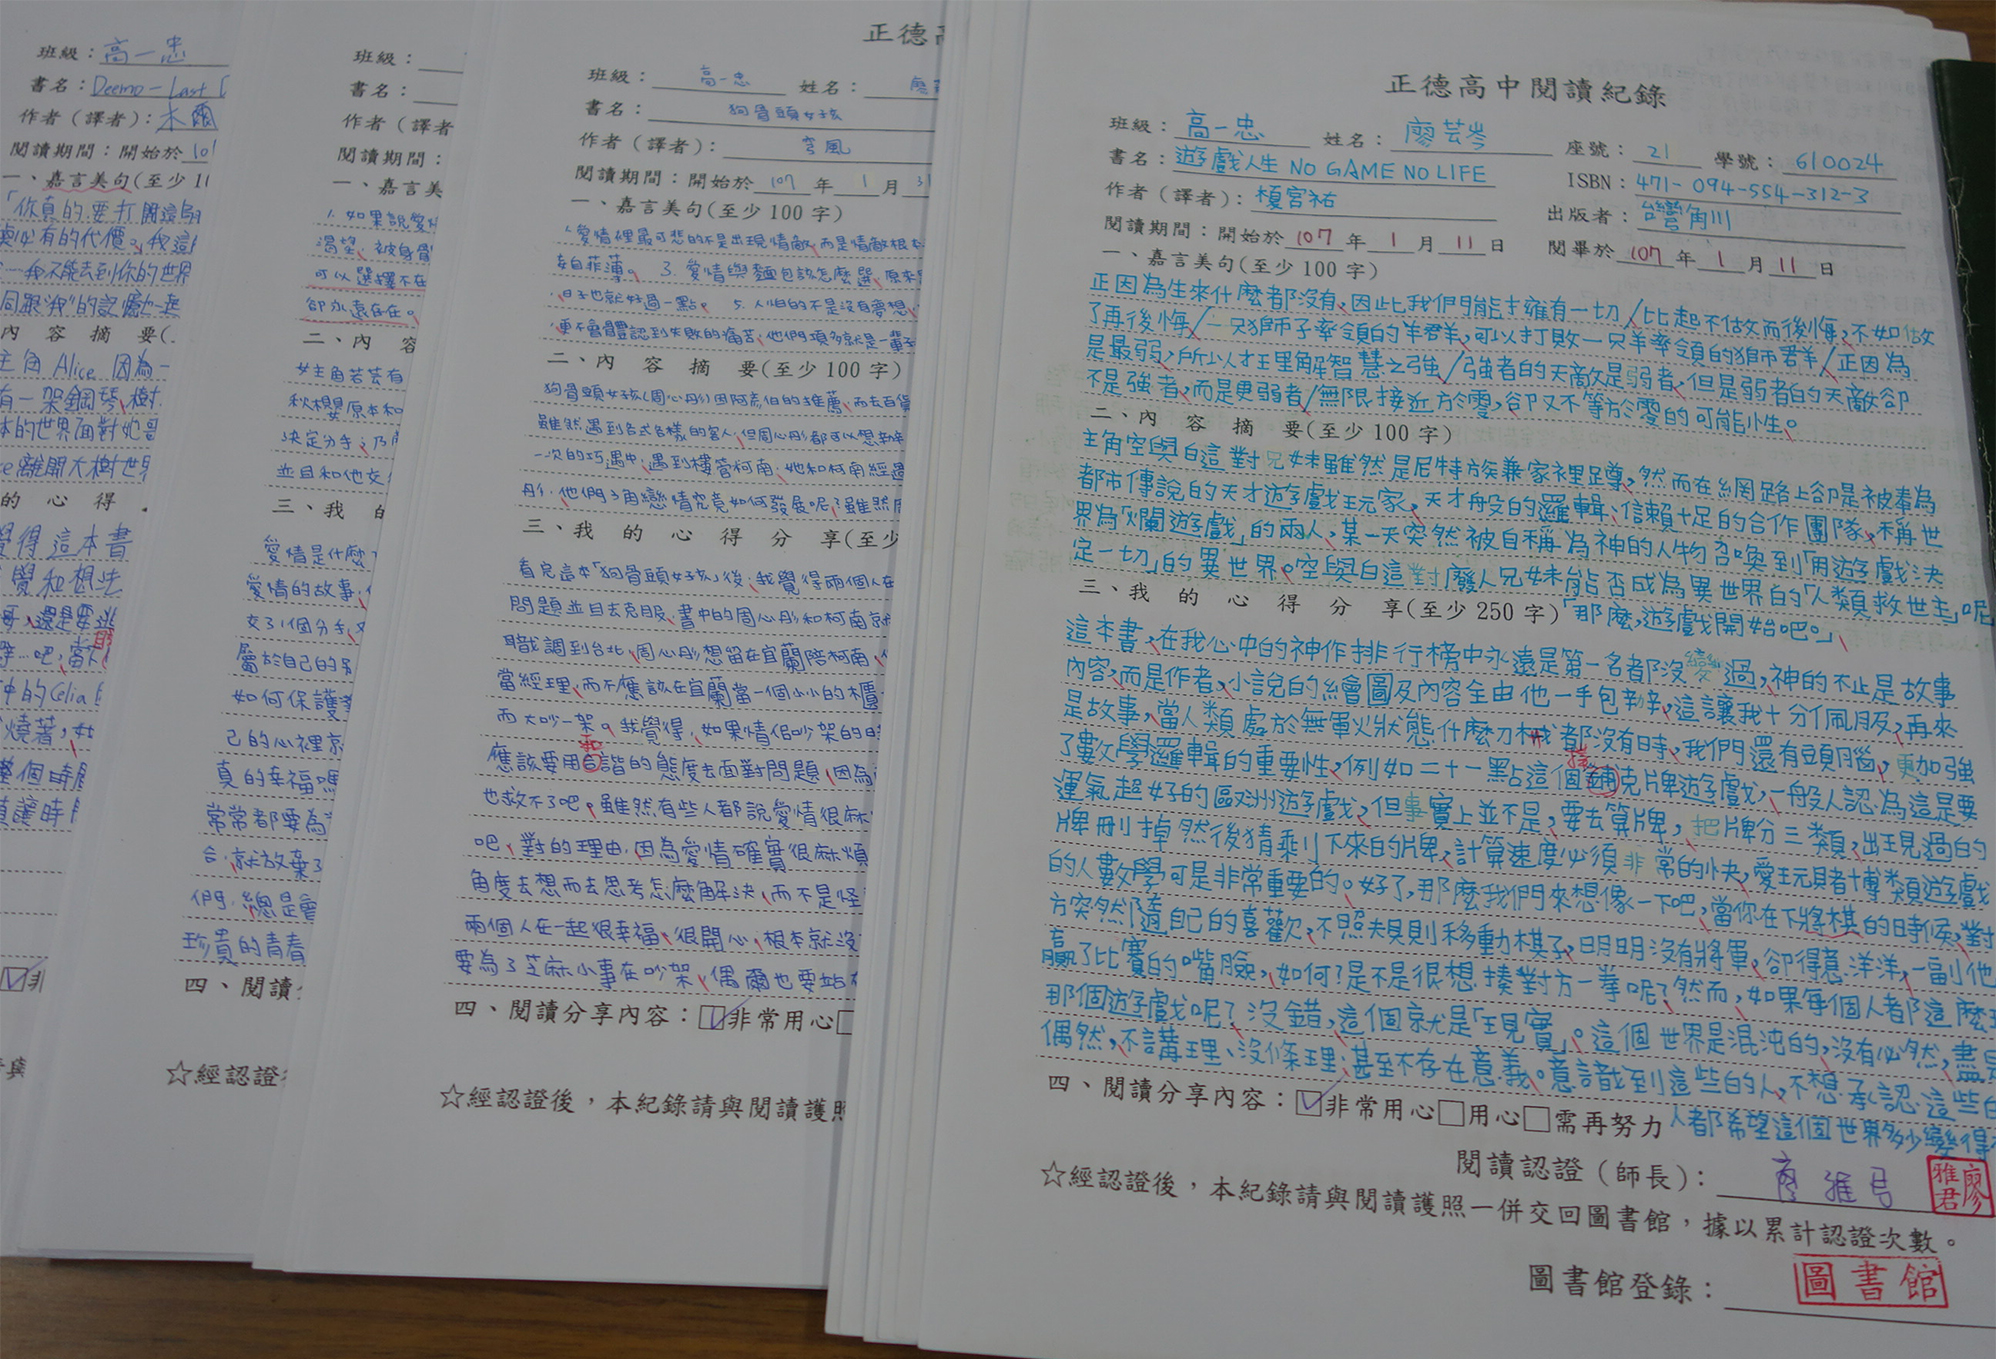 班級：高一忠
書名：Deemo-Last D
作者（譯者）：木爾
閱讀期間：開始於10
一、嘉言美句(至少1
「你真的要打開這扇
同跟"我"的記憶一起
內 容 摘 要(
主角 Alice 因為一
有一架鋼琴,樹
本的世界面對她哥
ce離開大樹世界
的 心 得
覺得這本書
覺和想法
中的Celia
整個時間
班級：
書名：
作者（譯者
閱讀期間：
一、嘉言美
1. 如果說愛情
渴望,被身骨
可以選擇不在
卻永遠存在。
二、內 容
女主角若芸有
秋櫻原本和
決定分手,乃
並且和他交
三、我 的
愛情是什麼?
愛情的故事,
女了1個分手,
屬於自己的另
如何保護
己的心裡
真的幸福嗎
常常都要為
合,就放棄了
們,總是會
珍貴的青春
四、閱讀
☆經認證
正德高
班級：高一忠 姓名：廖
書名：狗骨頭女孩
作者（譯者）：穹風
閱讀期間：開始於 107 年 1 月 3
一、嘉言美句(至少100字)
1.愛情裡最可悲的不是出現情敵,而是情敵根本
妄自菲薄。 3.愛情與麵包該怎麼選,原來
日子也就好過一點。 5.人怕的不是沒有夢想,
更不會體認到失敗的痛苦,他們頂多就是一輩子
二、內 容 摘 要(至少100字)
狗骨頭女孩(周心彤)因阿虎伯的推薦,而去百貨
雖然遇到各式各樣的客人,但周心彤都可以想辦
一次的巧遇中,遇到樓管柯南,她和柯南經過
彤,他們3角戀情究竟如何發展呢?雖然周
三、我 的 心 得 分 享(至少
看完這本「狗骨頭女孩」後,我覺得兩個人在
問題並且去克服,書中的周心彤和柯南就
職調到台北,周心彤想留在宜蘭陪柯南,
當經理,而不應該在宜蘭當一個小小的櫃
而大吵一架。我覺得,如果情侶吵架的時
應該要用和諧的態度去面對問題,因為
也救不了吧。雖然有些人都說愛情很麻
吧,對的理由,因為愛情確實很麻煩
角度去想而去思考怎麼解決,而不是怪
兩個人在一起很幸福,很開心,根本就沒
要為了芝麻小事在吵架,偶爾也要站在
四、閱讀分享內容：☑非常用心□
☆經認證後，本紀錄請與閱讀護照
正德高中閱讀紀錄
班級：高一忠 姓名：廖芸岑 座號：21 學號：610024
書名：遊戲人生 NO GAME NO LIFE ISBN：471-094-554-312-3
作者（譯者）：榎宮祐 出版者：台灣角川
閱讀期間：開始於 107 年 1 月 11 日 閱畢於 107 年 1 月 11 日
一、嘉言美句(至少100字)
正因為生來什麼都沒有,因此我們才能擁有一切/比起不做而後悔,不如做
了再後悔/一只獅子率領的羊群,可以打敗一只羊率領的獅群/正因為
是最弱,所以才理解智慧之強/強者的天敵是弱者,但是弱者的天敵卻
不是強者,而是更弱者/無限接近於零,卻又不等於零的可能性。
二、內 容 摘 要(至少100字)
主角空與白這對兄妹雖然是尼特族兼家裡蹲,然而在網路上卻是被奉為
都市傳說的天才遊戲玩家,天才般的邏輯,信賴十足的合作團隊,稱世
界為「爛遊戲」的兩人,某一天突然被自稱為神的人物召喚到「用遊戲決
定一切」的異世界。空與白這對廢人兄妹能否成為異世界的「人類救世主」呢
三、我 的 心 得 分 享(至少250字)「那麼,遊戲開始吧。」
這本書,在我心中的神作排行榜中永遠是第一名都沒變過,神的不止是故事
內容,而是作者,小說的繪圖及內容全由他一手包辦,這讓我十分佩服,再來
是故事,當人類處於無軍火狀態,什麼刀械都沒有時,我們還有頭腦,更加強
了數學邏輯的重要性,例如二十一點這個撲克牌遊戲,一般人認為這是要
運氣超好的歐洲遊戲,但事實上並不是,要去算牌,把牌分三類,出現過的
牌刪掉然後猜剩下來的牌,計算速度必須非常的快,愛玩賭博類遊戲
的人數學可是非常重要的。好了,那麼我們來想像一下吧,當你在下將棋的時候,對
方突然隨自己的喜歡,不照規則移動棋子,明明沒有將軍,卻得意洋洋,一副他
贏了比賽的嘴臉,如何?是不是很想揍對方一拳呢?然而,如果每個人都這麼玩
那個遊戲呢?沒錯,這個就是「現實」。這個世界是混沌的,沒有必然,盡是
偶然,不講理、沒條理,甚至不存在意義。意識到這些的人,不想承認這些的
人都希望這個世界多少變得
四、閱讀分享內容：☑非常用心□用心□需再努力
閱讀認證（師長）：廖雅君 廖雅君
☆經認證後，本紀錄請與閱讀護照一併交回圖書館，據以累計認證次數。
圖書館登錄：圖書館